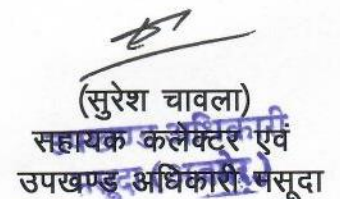 (सुरेश चावला)
सहायक कलेक्टर एवं
उपखण्ड अधिकारी मसूदा